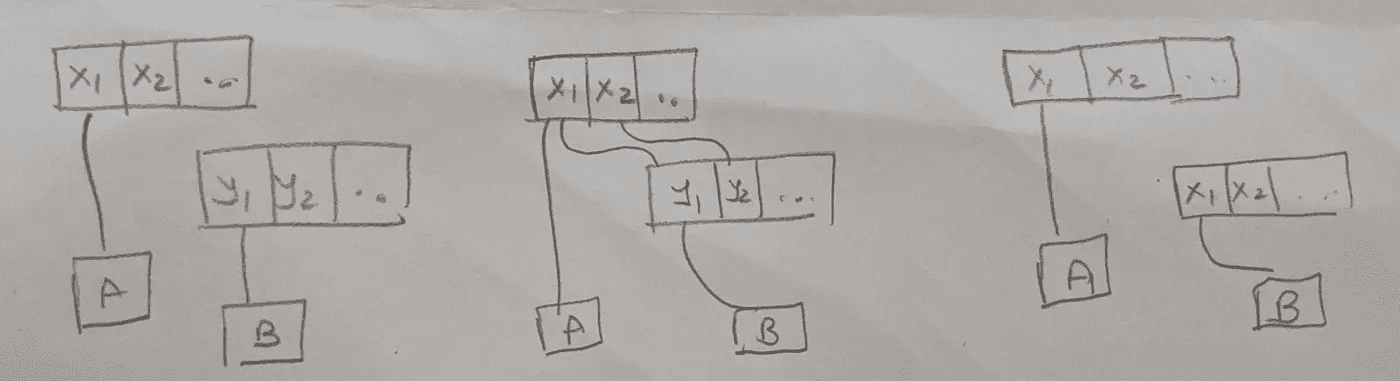 x₁ x₂ ..
y₁ y₂ ..
A
B
x₁ x₂ ..
y₁ y₂ ...
A
B
x₁ x₂ ...
x₁ x₂ ...
A
B